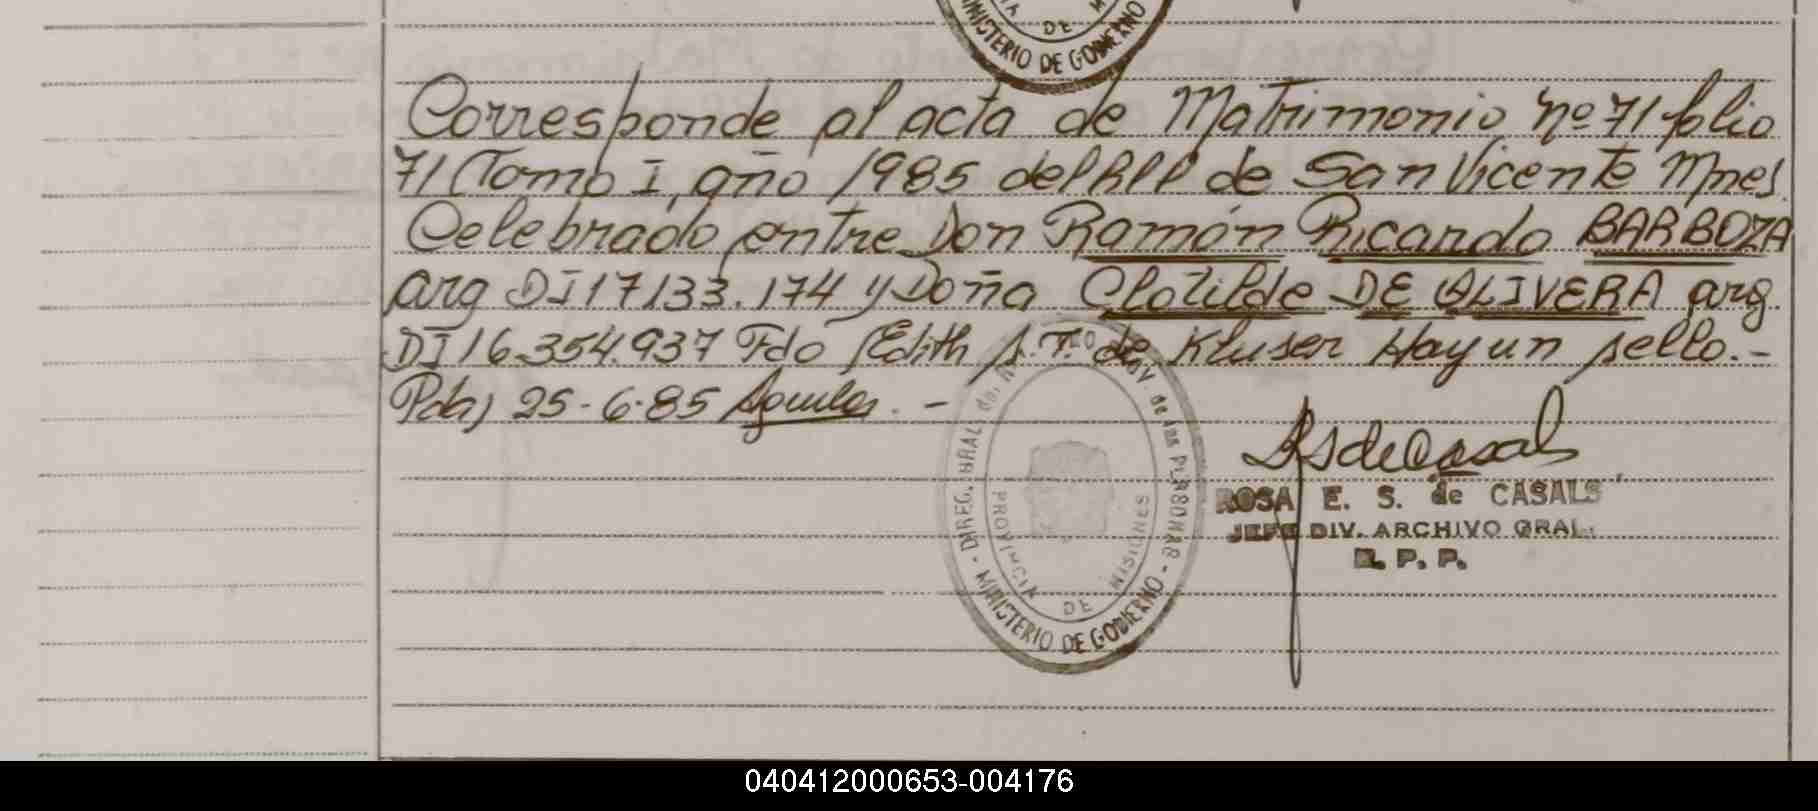 DE
MINISTERIO DE GOBIERNO
Corresponde al acta de Matrimonio nº 71 folio
71 Tomo I, año 1985 del RPP de San Vicente Mnes.
Celebrado entre Don Ramón Ricardo BARBOZA
arg DI 17133.174 y Doña Clotilde DE OLIVERA arg.
DI 16.354.937 Fdo Edith S. T. de Kluser Hay un sello.-
Pdas 25-6-85 Aguilar.-
PROVINCIA DE MISIONES
MINISTERIO DE GOBIERNO
ROSA E. S. de CASALS
JEFE DIV. ARCHIVO GRAL.
R. P. P.
040412000653-004176